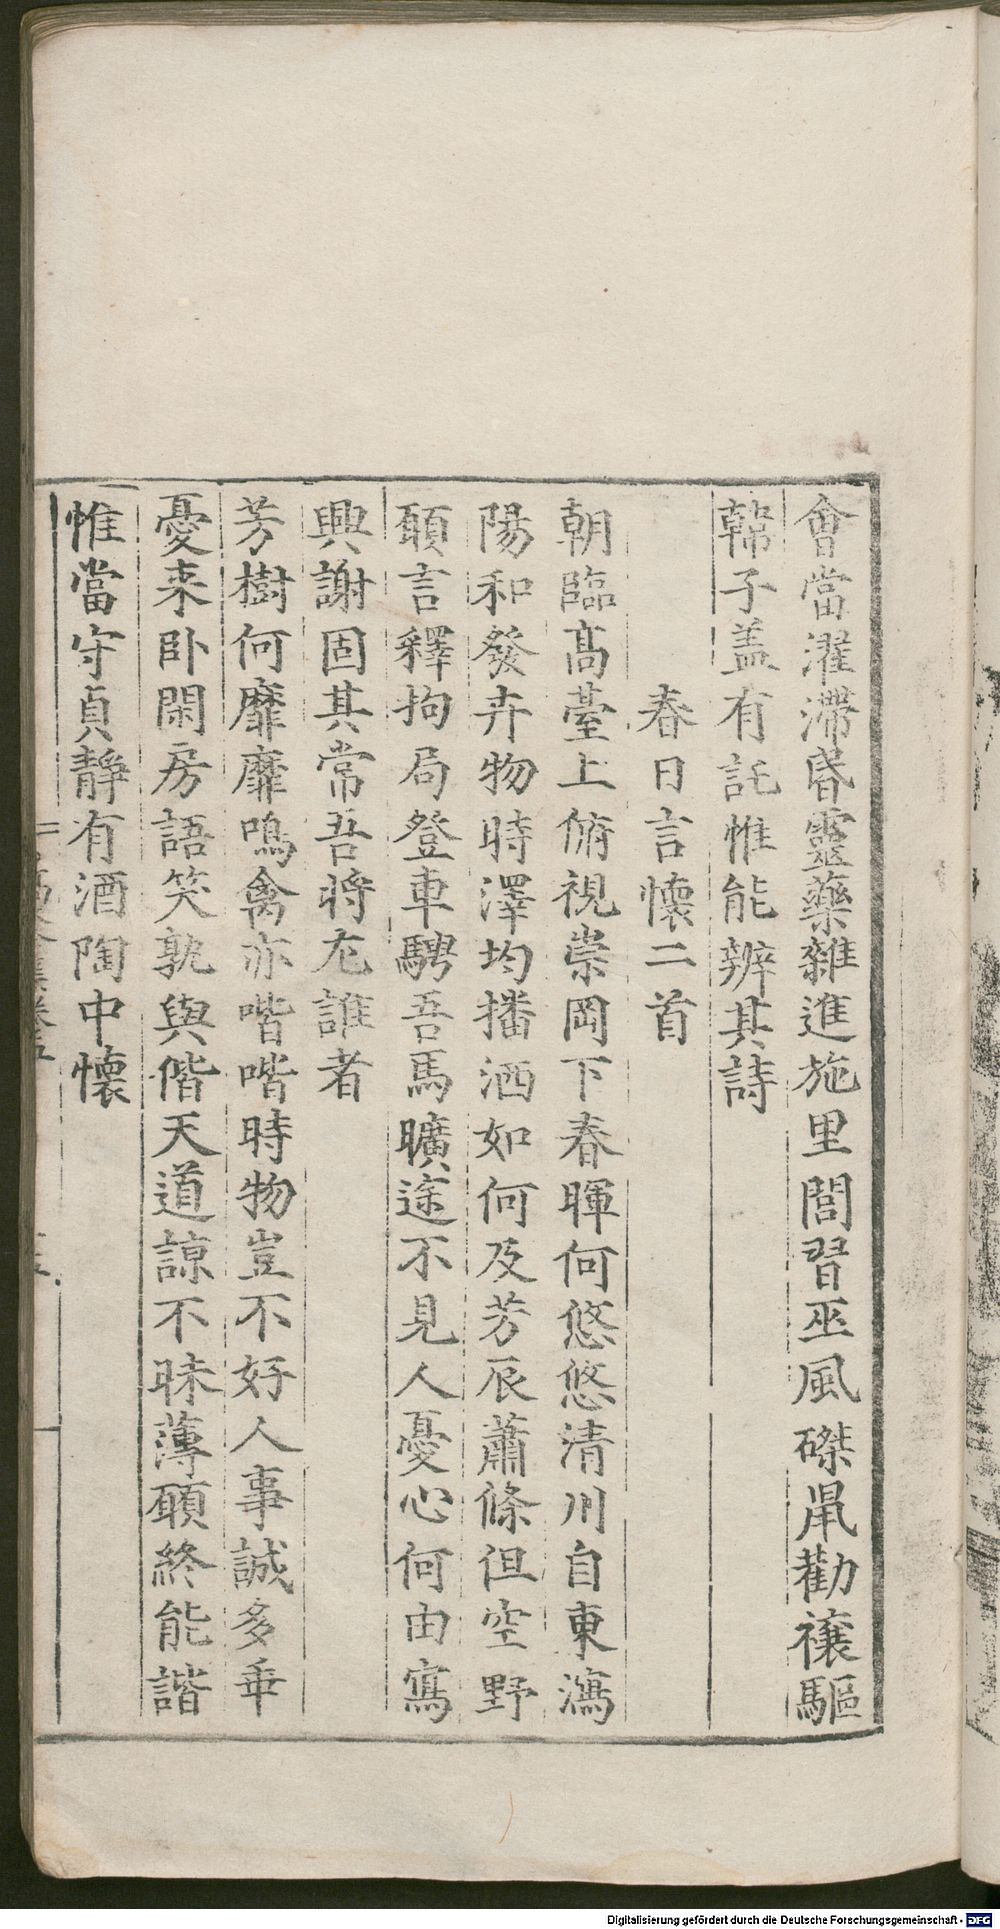 會當濯滯昏靈藥雜進施里閭習巫風磔鼠勸禳驅
韓子盖有託惟能辨其詩
春日言懷二首
朝臨髙臺上俯視崇岡下春暉何悠悠清川自東瀉
陽和發卉物時澤均播洒如何及芳辰蕭條但空野
願言釋拘局登車騁吾馬曠途不見人憂心何由寫
興謝固其常吾將尤誰者
芳樹何靡靡鳴禽亦喈喈時物豈不好人事誠多乖
憂来卧閑房語笑孰與偕天道諒不昧薄願終能諧
惟當守貞靜有酒陶中懷
Digitalisierung gefördert durch die Deutsche Forschungsgemeinschaft - DFG